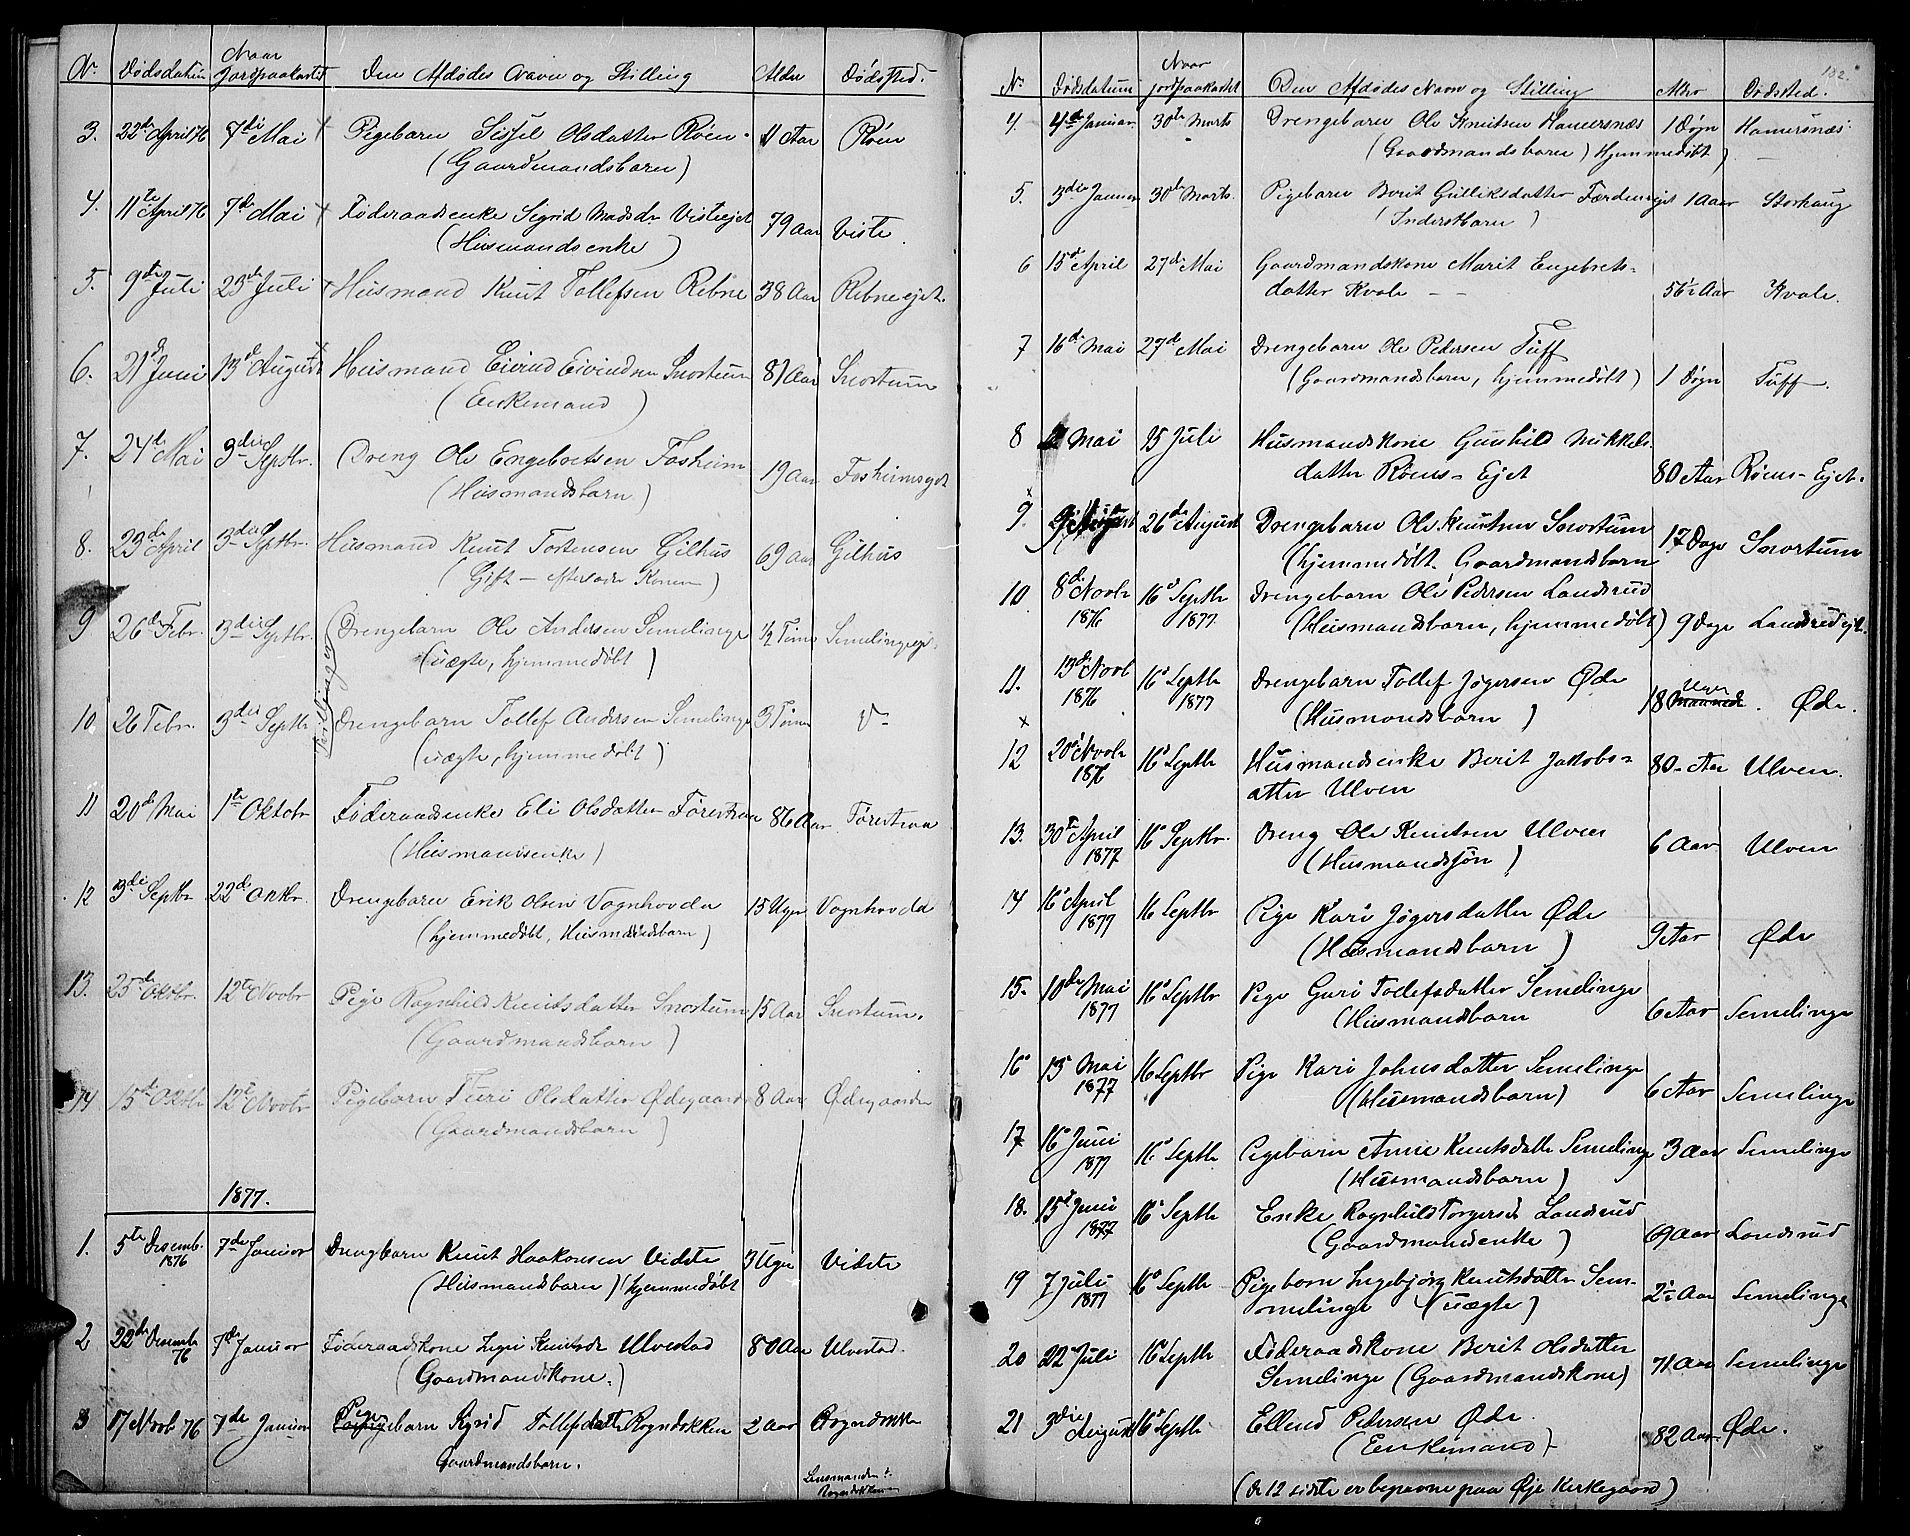 Nr. Dødsdatum Naar Jordpaakastet Den Afdødes Navn og Stilling Alder Dødssted.
3. 22de April 76 7di Mai Pigebarn Sissel Olsdatter Röen 11 Aar Röen
(Gaardmandsbarn)
4. 11te April 76 7de Mai Føderaadsenke Sigrid Madsdr Visteejet 79 Aar Viste.
(Husmandsenke)
5. 9de Juli 23de Juli Husmand Knut Tollefsen Rebne 38 Aar Rebneejet.
6. 21de Juni 13de August Husmand Eivind Eivindsen Snortum 81 Aar Snortum
(Enkemand)
7. 24de Mai 3die Septbr. Dreng Ole Engebretsen Fosheim 19 Aar Fosheimsejet
(Husmandsbarn)
8. 23de April 3die Septbr. Husmand Knut Tostensen Gilhus 69 Aar Gilhus
(Gift – efterlader Konen)
9 26de Febr. 3die Septbr. Drengebarn Ole Andersen Semelinge 1/2 Time Semelingeej.
(uægte, hjemmedøbt)
Tvillinger
10. 26 Febr. 3die Septbr Drengebarn Tollef Andersen Semelinge 3 Timer
(uægte, hjemmedøbt)
11 20de Mai 1ste Oktobr Føderaadsenke Eli Olsdatter Förestraa 86 Aar Förestraa
(Husmandsenke)
12 3die Septbr 22de Oktbr. Drengebarn Erik Olsen Vognhovda 15 Uger Vognhovda
(hjemmedøbt, Husmandsbarn)
13. 25de Oktbr. 12te Novbr Pige Ragnhild Knutsdatter Snortum 15 Aar Snortum.
(Gaardmandsbarn)
14 15de Oktbr 12te Novbr Pigebarn Turi Olsdatter Ødegaarden 8 Aar Ødegaarden
(Gaardmandsbarn)
1877.
1. 5te Desemb. 1876 7de Januar Drengbarn Knut Haakonsen Vidste 3 Uger Vidste
(Husmandbarn) (hjemmedøbt
2 22de Desembr 76 7de Januar Føderaadskone Knutsdr Ulvestad 80 Aar Ulvestad.
(Gaardmandskone.)
3 17 Novb 76 7de Januar Pigebarn Sigrid Tollefsdatt Rogndokken 2 Aar Rogndokken
Gaardmandsbarn.
182.
Nr. Dødsdatum Naar jordpaakastet Den Afdødes Navn og Stilling Alder Dødssted.
4. 4de Januar 30te Marts Drengebarn Ole Knutsen Hamersnæs 1 Døgn Hamersnæs
(Gaardmandsbarn) Hjemmedöbt)
5. 3die Januar 30te Marts. Pigebarn Berit Gulliksdatter Færdensejet 1 Aar Storhaug
(Inderstbarn)
6 15de April 27de Mai Gaardmandskone Marit Engebrets-
datter Kvale 56½ Aar Kvale.
7 16de Mai 27de Mai Drengebarn Ole Pedersen Tuff
(Gaardmandsbarn, hjemmedøbt) 1 Døgn Tuff.
8 Mai 15 Juli Husmandskone Gunhild Mikkels-
datter Röens-Ejet 80 Aar Röens-Ejet.
9 August 26de August Drengebarn Ole Knutsen Snortum 12 Dage Snortum
(hjemmedøbt. Gaardmandsbarn
10 8de Novbr 1876 16de Septbr 1877 Drengebarn Ole Pedersen Landsrud
(Husmandbarn, hjemmedøbt) 9 Dage Landsrudejt.
11. 13de Novb 1876 16de Septbr 1877 Drengebarn Tollef Jögersen Øde 18 Uger Maaneder. Øde.
(Husmandsbarn)
12 20de Novbr 1876 16de Septbr Husmandsenke Berit Jakobs-
atter Ulven 80 Aar Ulven.
13. 30te April 1877 16de Septbr. Dreng Ole Knutsen Ulven 6 Aar Ulven
(Husmandssøn)
14 16de April 1877 16 Septbr Pige Kari Jögersdatter Øde 9 Aar Øde
(Husmandsbarn)
15. 10de Mai 1877 16de Septbr Pige Guri Tollefsdatter Semelinge 6 Aar Semelinge
(Husmandbarn
16 13 Mai 1877 16 Septbr Pige Kari Johnsdatter Semelinge 6 Aar Semelinge
(Husmandsbarn)
17 16de Juni 1877 16de Septbr Pigebarn Anne Knutsdatte Semelinge 3 Aar Semelinge
(Husmandsbarn)
18. 15de Juni 1877 16de Septbr Enke Ragnhild Torgersdr Landsrud 69 Aar Landsrud
(Gaardmandsenke)
19 7 Juli 1877 16de Septbr Pigebarn Ingebjörg Knutsdatter Sem-
melinge (uægte) 2½ Aar Semelinge
20 22 Juli 16de Septbr Føderaadskone Berit Olsdatter
Semelinge (Gaardmandskone) 71 Aar Semelinge
21 3die August 16de Septbr Ellend Pedersen Øde.
(Enkemand) 82 Aar. Øde.
(De 12 sidste er begravne paa Øje Kirkegaard)